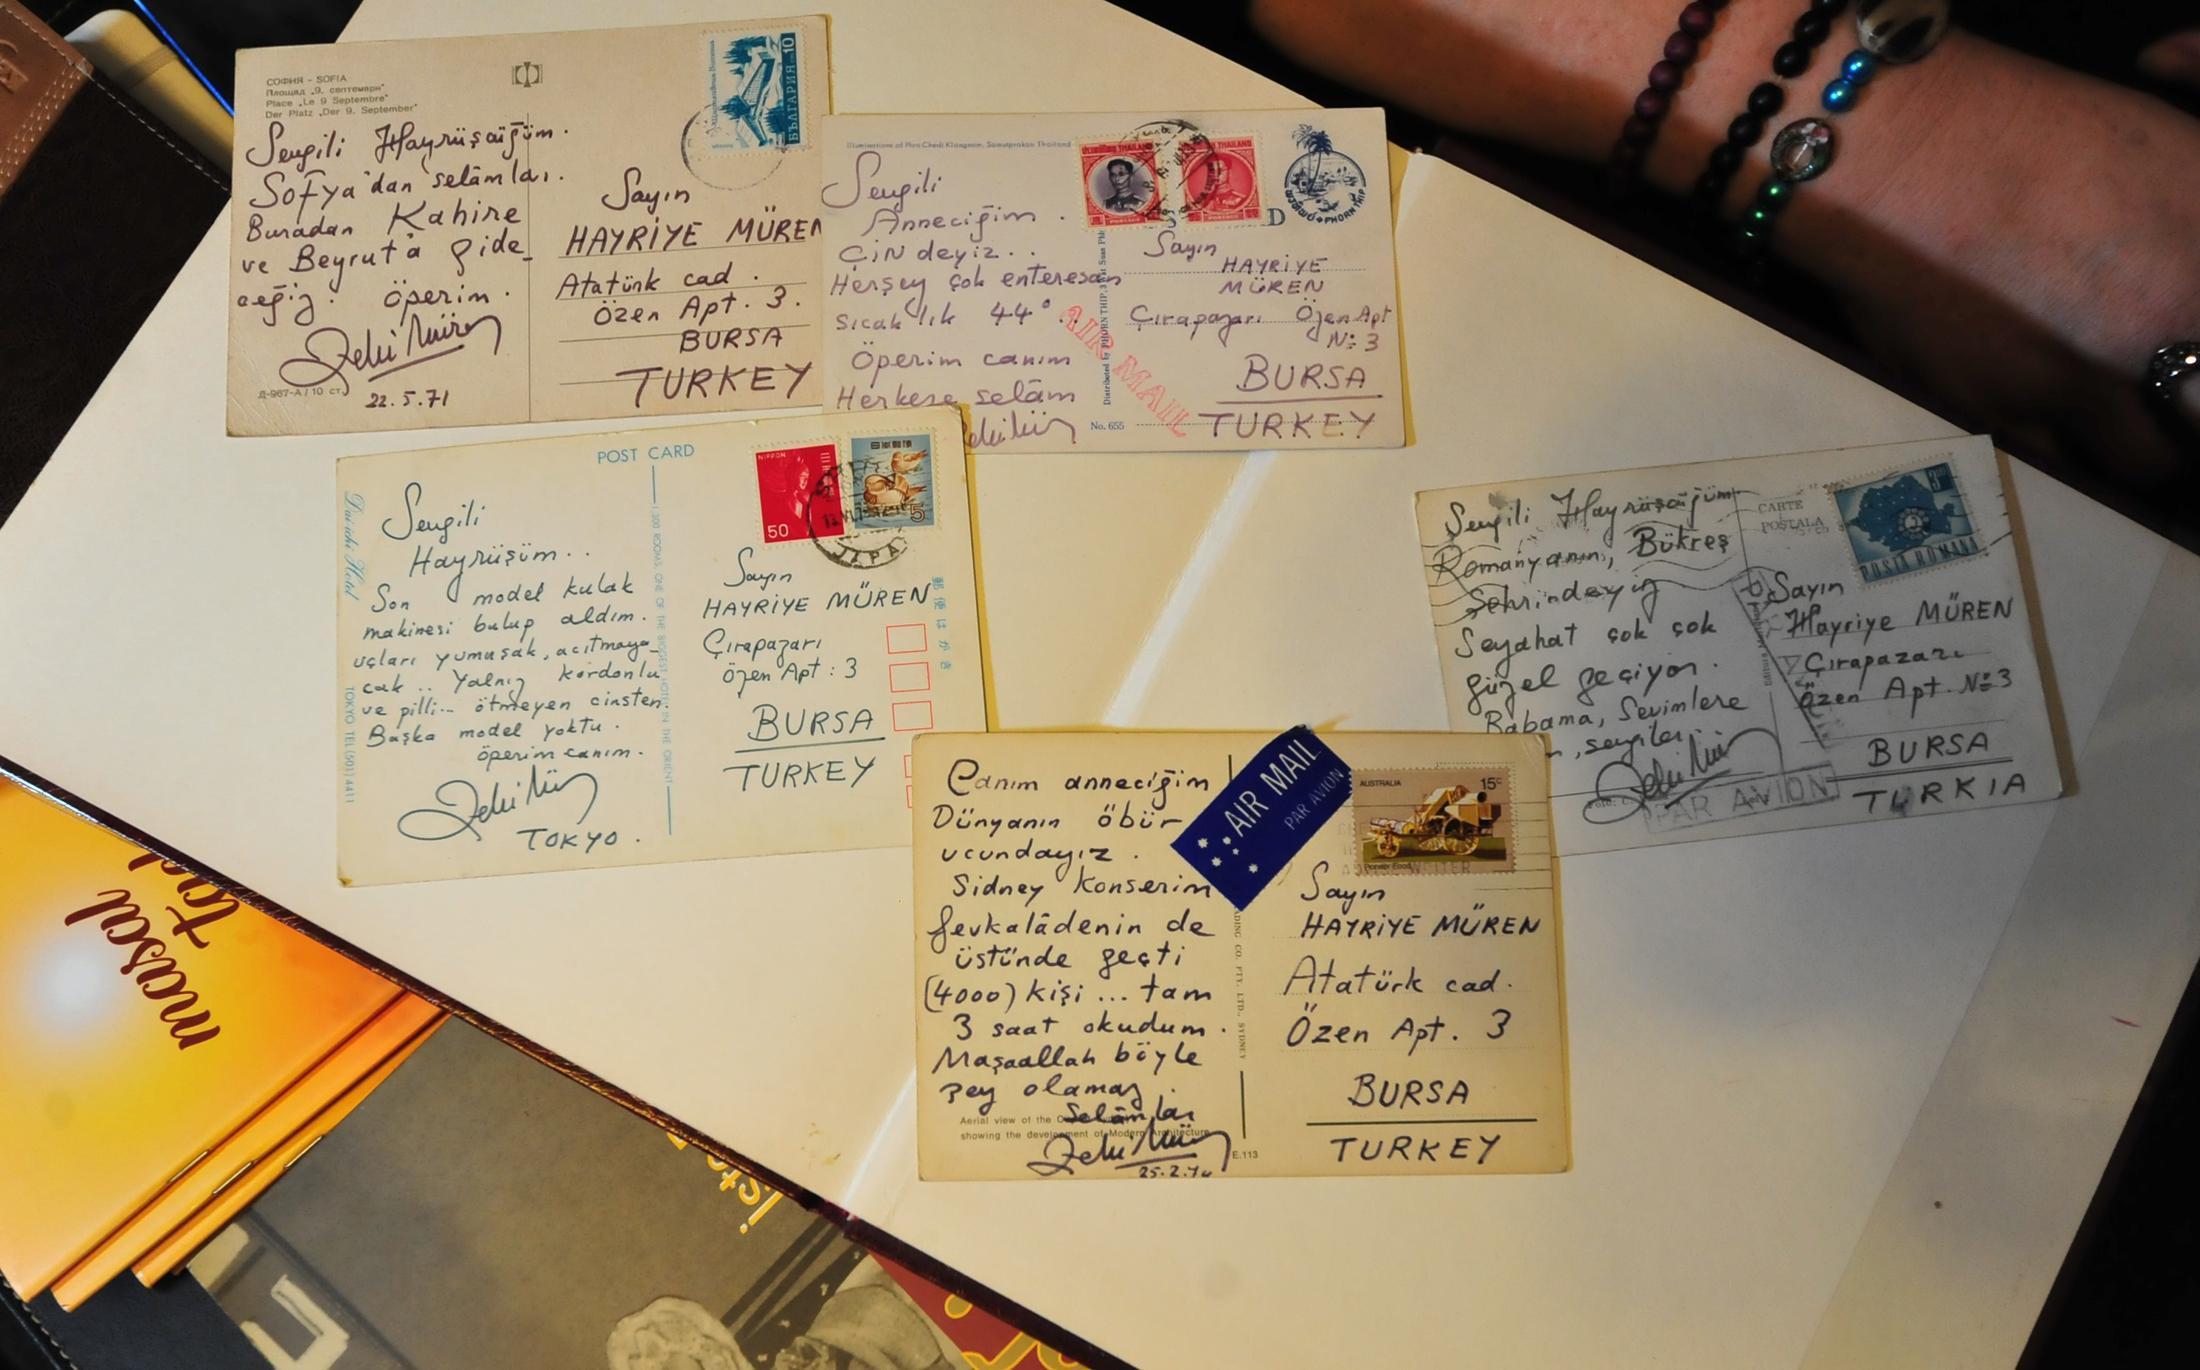 СОФИЯ - SOFIA
Площад „9. септември“
Place „Le 9 Septembre“
Der Platz „Der 9. September“
Sevgili Hayrüşcüğüm.
Sofya'dan selâmlar.
Buradan Kahire
ve Beyrut'a gide_
ceğiz. Öperim.
Zeki Müren
22.5.71
Д-967-А / 10 ст.
БЪЛГАРИЯ 10
Sayın
HAYRİYE MÜREN
Atatürk cad.
Özen Apt. 3.
BURSA
TURKEY
Illuminations of Phra Chedi Klangnam, Samutprakan Thailand
Sevgili
Anneciğim.
ÇİN deyiz..
Herşey çok enteresan
sıcaklık 44°..
Öperim canım
Herkese selâm
Zeki Müren
THAILAND
THAILAND
PHORNTHIP
AIR MAIL
No. 655
Sayın
HAYRİYE
MÜREN
Çırapazarı Özen Apt
No: 3
BURSA
TURKEY
POST CARD
Dai-ichi Hotel
TOKYO TEL (501) 4411
Sevgili
Hayrüşüm..
Son model kulak
makinesi bulup aldım.
uçları yumuşak, acıtmaya_
cak.. Yalnız kordonlu
ve pilli.. ötmeyen cinsten
Başka model yoktu.
öperim canım.
Zeki Müren
TOKYO.
NIPPON
50
日本郵便
5
JAPAN
郵便はがき
Sayın
HAYRİYE MÜREN
Çırapazarı
Özen Apt: 3
BURSA
TURKEY
Sevgili Hayrüşcüğüm
Romanyanın, Bükreş
Şehrindeyiz
Seyahat çok çok
güzel geçiyor.
Babama, Sevimlere
sevgiler
Zeki Müren
CARTE
POSTALA
POSTA ROMANA
PAR AVION
Sayın
Hayriye MÜREN
Çırapazarı
Özen Apt. No: 3
BURSA
TURKIA
Canım anneciğim
Dünyanın öbür
ucundayız.
Sidney Konserim
fevkalâdenin de
üstünde geçti
(4000) kişi... tam
3 saat okudum.
Maşaallah böyle
şey olamaz.
Selâmlar
Aerial view of the
showing the development of Modern Architecture
Zeki Müren
E.113
AIR MAIL
PAR AVION
AUSTRALIA 15c
Pioneer Food
Sayın
HAYRİYE MÜREN
Atatürk cad.
Özen Apt. 3
BURSA
TURKEY
masal